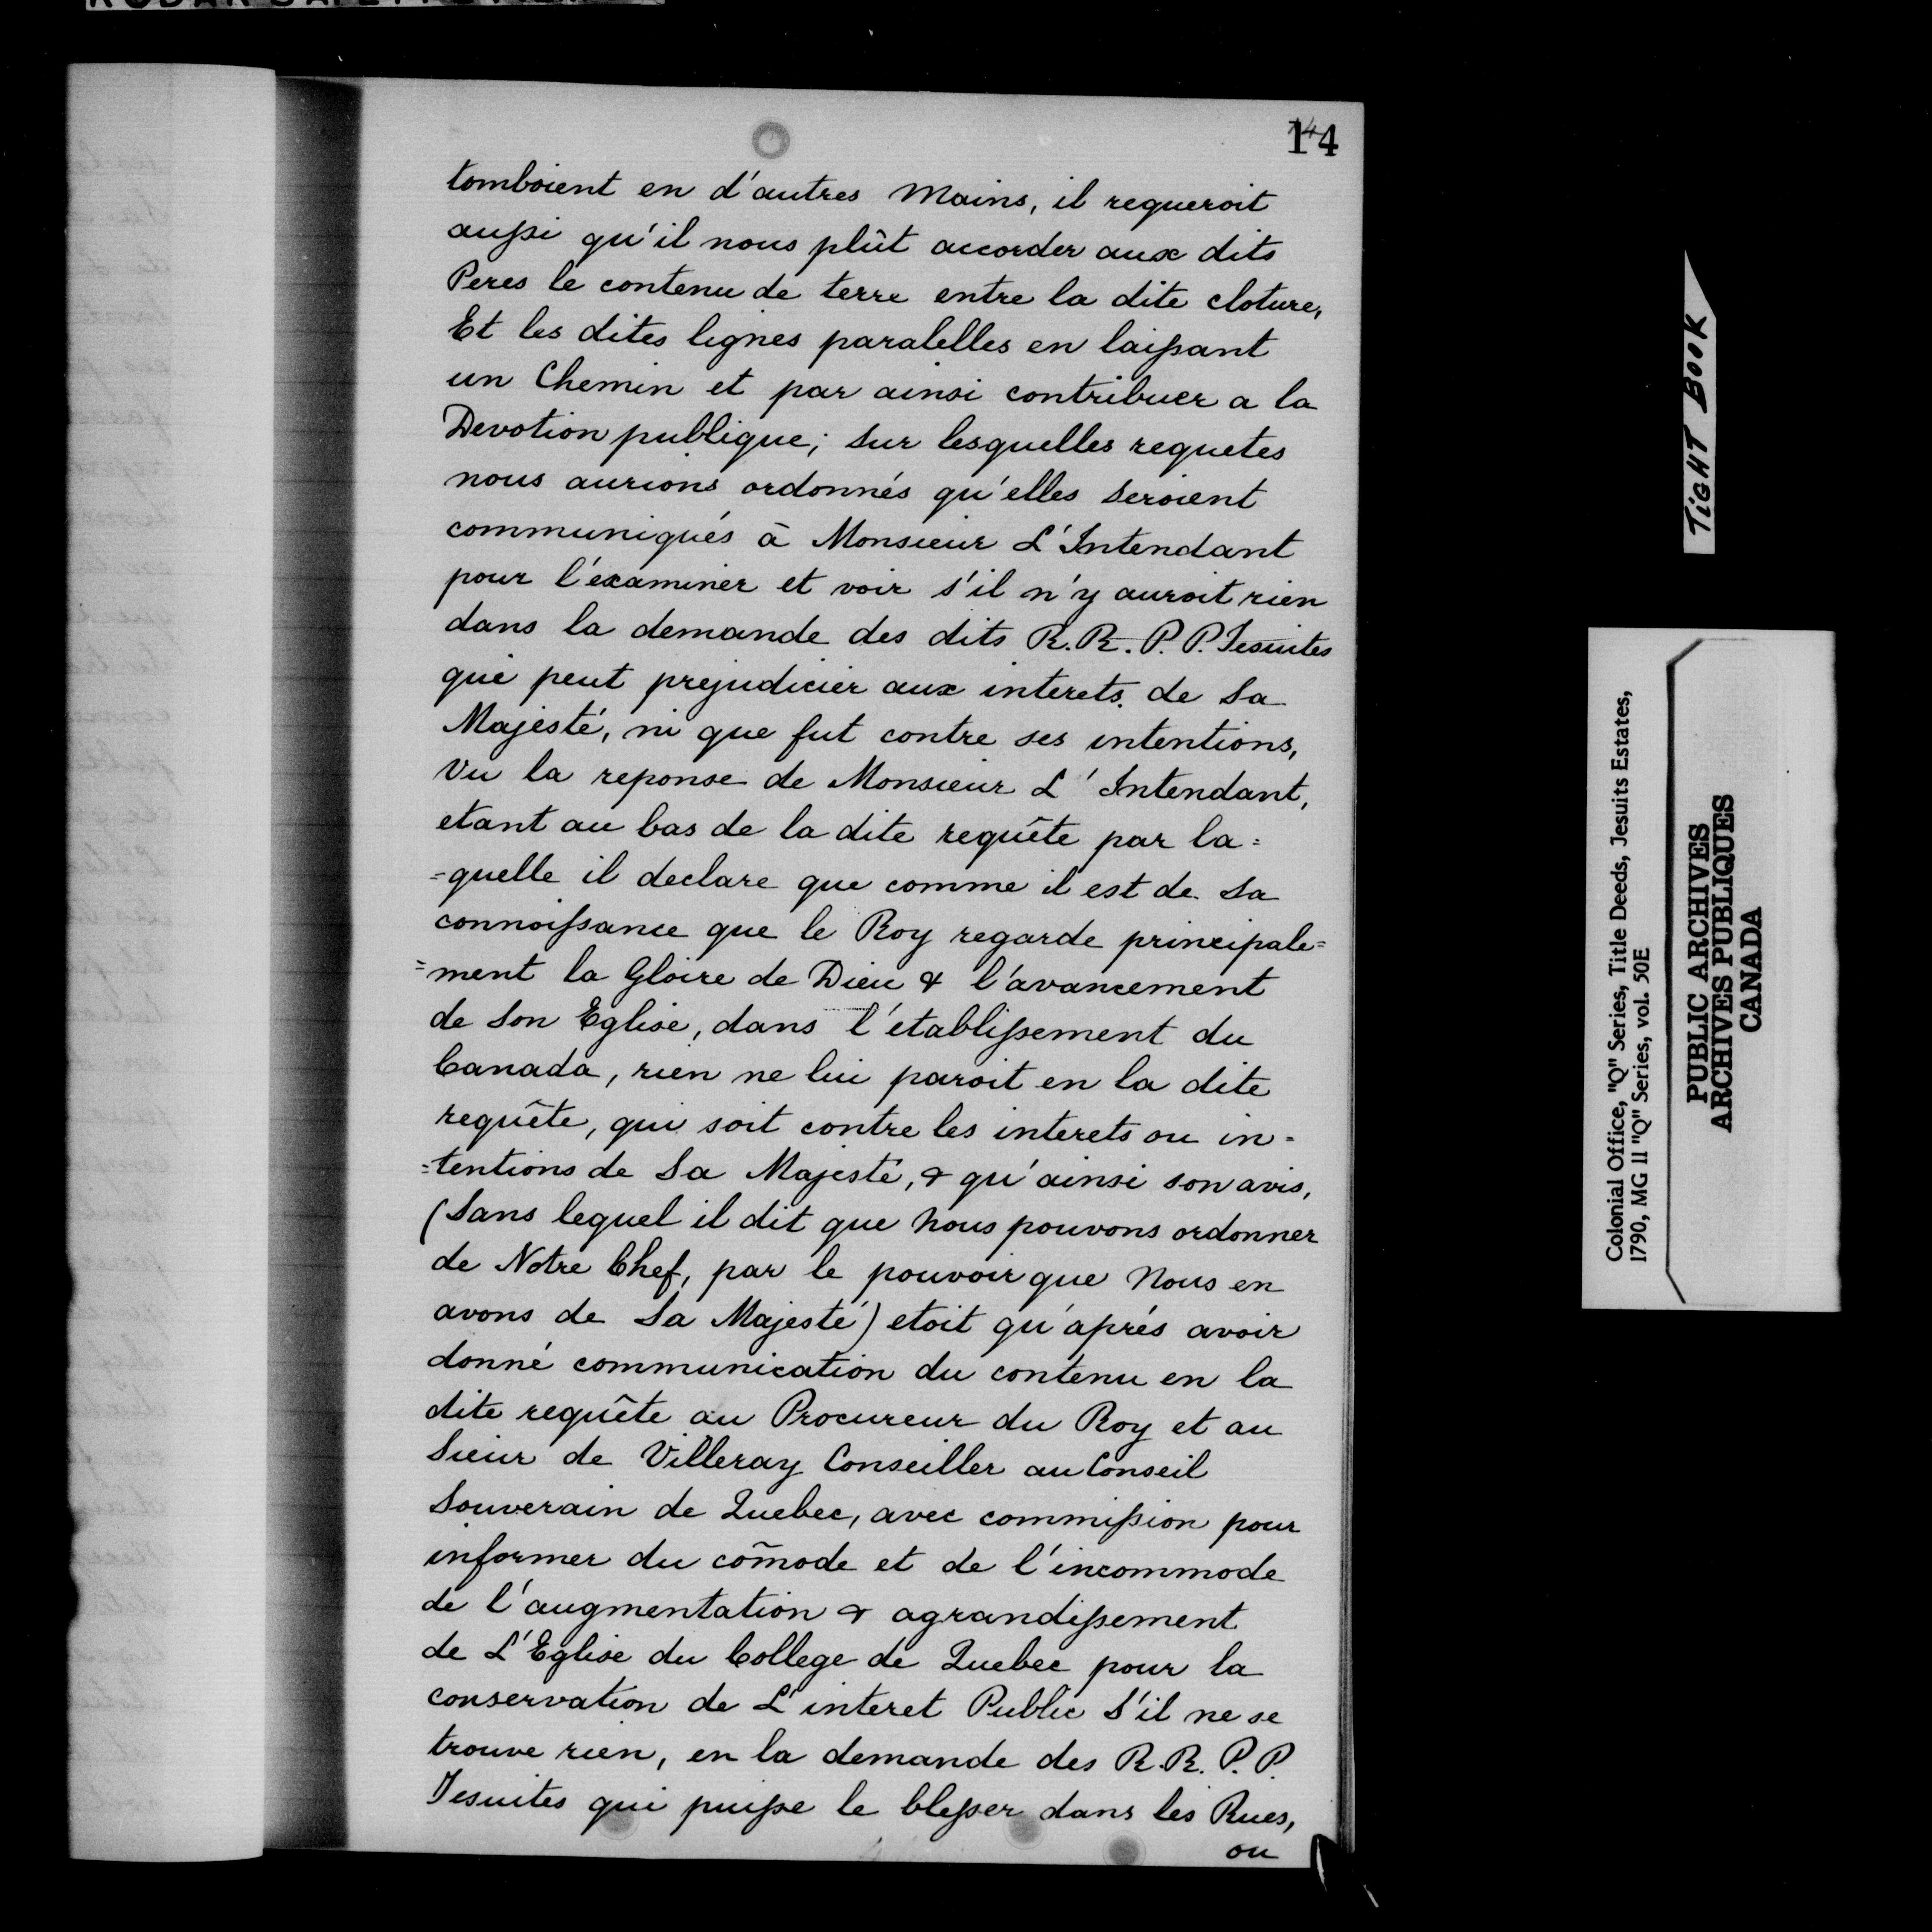 14
tomboient en d'autres Mains, il requeroit
aussi qu'il nous plût accorder aux dits
Peres le contenu de terre entre la dite cloture,
Et les dites lignes paralelles en laissant
un Chemin et par ainsi contribuer a la
Devotion publique; sur lesquelles requetes
nous aurions ordonnés qu'elles seroient
communiqués à Monsieur L'Intendant
pour l'examiner et voir s'il n'y auroit rien
dans la demande des dits R.R.P.P. Jesuites
qui peut prejudicier aux interets de Sa
Majesté, ni que fut contre ses intentions,
Vu la reponse de Monsieur L'Intendant,
etant au bas de la dite requête par la=
=quelle il declare que comme il est de sa
connoissance que le Roy regarde principale=
=ment la Gloire de Dieu & l'avancement
de son Eglise, dans l'etablissement du
Canada, rien ne lui paroit en la dite
requête, qui soit contre les interets ou in=
=tentions de Sa Majesté, & qu'ainsi son avis,
(Sans lequel il dit que Nous pouvons ordonner
de Notre Chef, par le pouvoir que Nous en
avons de Sa Majesté) etoit qu'aprés avoir
donné communication du contenu en la
dite requête au Procureur du Roy et au
Sieur de Villeray Conseiller au Conseil
Souverain de Quebec, avec commission pour
informer du com̃ode et de l'incommode
de l'augmentation & agrandissement
de L'Eglise du College de Quebec pour la
conservation de L'interet Public S'il ne se
trouve rien, en la demande des R.R.P.P.
Jesuites qui puisse le blesser dans les Rues,
ou
TIGHT BOOK
Colonial Office, "Q" Series, Title Deeds, Jesuits Estates,
1790, MG 11 "Q" Series, vol. 50E
PUBLIC ARCHIVES
ARCHIVES PUBLIQUES
CANADA